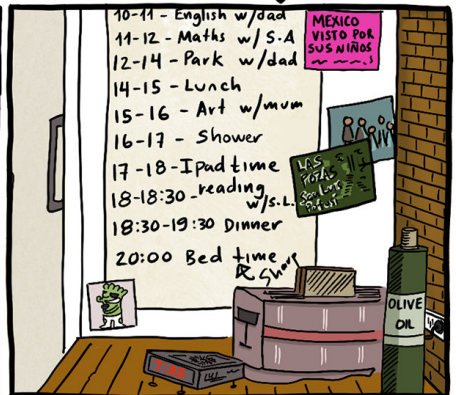 10-11 - English w/dad
11-12 - Maths w/ S.A
12-14 - Park w/dad
14-15 - Lunch
15-16 - Art w/mum
16-17 - Shower
17-18 - Ipad time
18-18:30 - reading w/S.L.
18:30-19:30 Dinner
20:00 Bed time
Sharp
MEXICO
VISTO POR
SUS NIÑOS
LAS
OLIVE
OIL